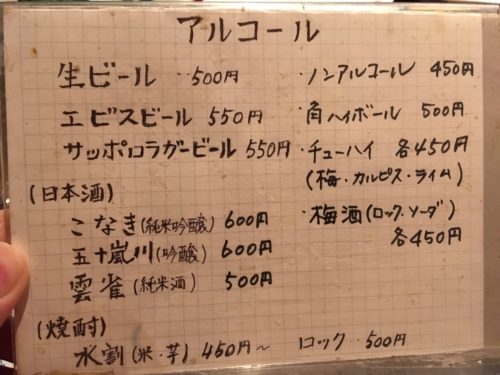 アルコール
生ビール ‥500円
エビスビール 550円
サッポロラガービール 550円
(日本酒)
こなき(純米吟醸) 600円
五十嵐川(吟醸) 600円
雲雀(純米酒) 500円
(焼酎)
水割(米・芋) 450円～ ロック 500円
・ノンアルコール 450円
・角ハイボール 500円
・チューハイ 各450円
(梅・カルピス・ライム)
・梅酒(ロック・ソーダ)
各450円